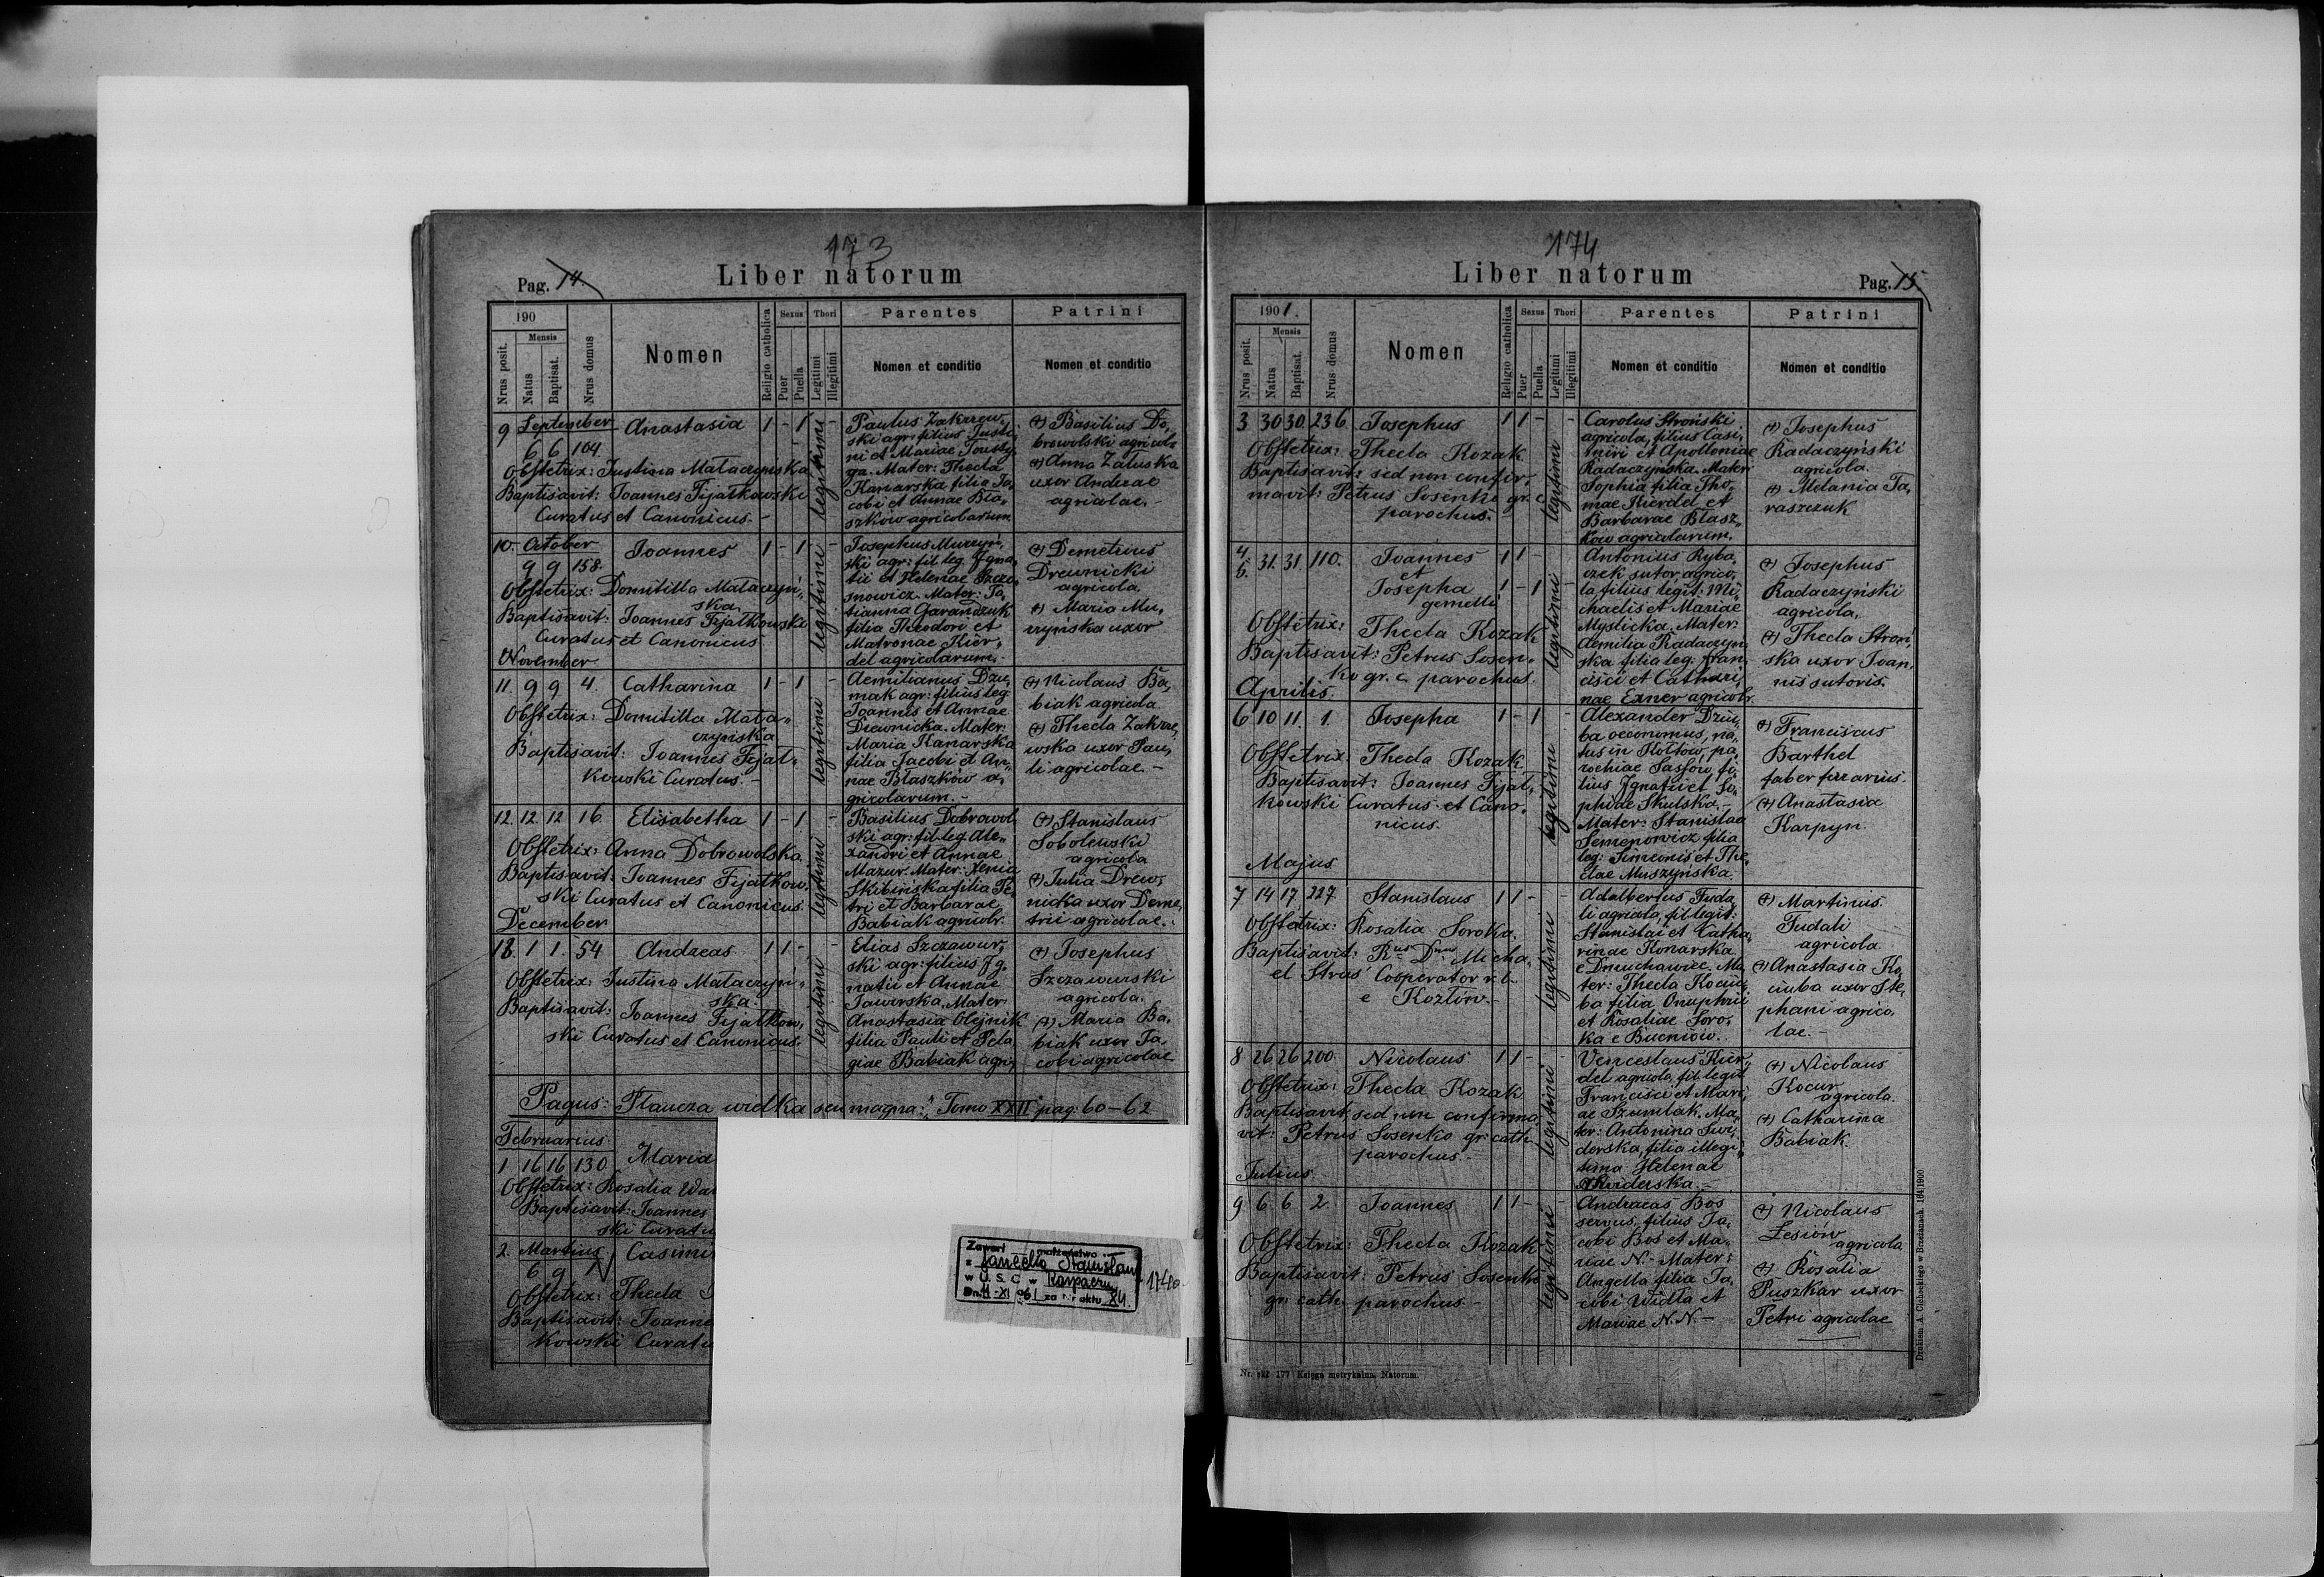 173
Pag. 14
Liber natorum
190
Mensis
Nrus posit.
Natus
Baptisat.
Nrus domus
Nomen
Religio catholica
Sexus
Puer
Puella
Thori
Legitimi
Illegitimi
Parentes
Nomen et conditio
Patrini
Nomen et conditio
9 September Anastasia 1 - 1 -
6 6 104
Obstetrix: Justina Mataczyńska
Baptisavit: Joannes Fijałkowski
Curatus et Canonicus.-
legitimi
Paulus Zakrzew„
ski agr: filius Justi„
ni et Mariae
ga. Mater: Thecla
Kanarska filia Ja„
cobi et Annae Bła„
szków agricolarum
(+) Basilius Do„
browolski agricola
(+) Anna Załuska
uxor Andreae
agricolae.-
10. October Joannes 1 - 1 -
9 9 158.
Obstetrix: Domitilla Mataczyń„
ska
Baptisavit: Joannes Fijałkowski
Curatus et Canonicus
legitimi
Josephus Muczyń„
ski agr: fil. leg. Igna„
tii et Helenae
Mater: Ta„
tianna Garandzuk
filia Theodori et
Matronae Kier„
del agricolarum.
(+) Demetrius
Drewnicki
agricola.
(+) Maria Mu„
czyńska uxor
November
11. 9 9 4. Catharina 1 - 1 -
Obstetrix: Domitilla Mata„
czyńska
Baptisavit: Joannes Fijał„
kowski Curatus.-
legitimi
Aemilianus Dzu„
mak agr: filius leg
Joannis et Annae
Drewnicka. Mater:
Maria Kanarska
filia Jacobi et An„
nae Błaszków a„
gricolarum.-
(+) Nicolaus Ba„
biak agricola
(+) Thecla Zakrze„
wska uxor Pau„
li agricolae.-
12. 12 12 16. Elisabetha 1 - 1 -
Obstetrix: Anna Dobrowolska
Baptisavit: Joannes Fijałkow„
ski Curatus et Canonicus.
legitimi
Basilius Dobrowol
ski agr: fil. leg Ale„
xandri et Annae
Mazur. Mater: Xenia
Skibińska filia Pe„
tri et Barbarae
Babiak agricolr.
(+) Stanislaus
Sobolewski
agricola
(+) Julia Drew„
nicka uxor Deme„
trii agricolae.
December
13. 1 1. 54 Andreas 1 1 - -
Obstetrix: Justina Mataczyń„
ska.
Baptisavit: Joannes Fijałkow„
ski Curatus et Canonicus.
legitimi
Elias Szczawur„
ski agr: filius Ig„
natii et Annae
Jaworska. Mater
Anastasia Olejnik
filia Pauli et Pela
giae Babiak agri„
(+) Josephus
Szczawurski
agricola.
(+) Maria Ba„
biak uxor Ja„
cobi agricolae
Pagus: Płaucza wielka seu magna: „Tomo XXII" pag: 60-62
Februarius
1 16 16 130 Maria
Obstetrix: Rosalia
Baptisavit: Joannes
ski
2. Martius
6 9
Obstetrix: Thecla
Baptisavit:
kowski
Zawarł małżeństwo
z Stanisław
w U. S. C. w Karpaczu
Dn. 4-XI 61 za Nr aktu 84.
174
Liber natorum
Pag. 15
1901.
Mensis
Nrus posit.
Natus
Baptisat.
Nrus domus
Nomen
Religio catholica
Sexus
Puer
Puella
Thori
Legitimi
Illegitimi
Parentes
Nomen et conditio
Patrini
Nomen et conditio
3 30 30. 236. Josephus 1 1 - -
Obstetrix: Thecla Kozak
Baptisavit: sed non confir„
mavit: Petrus Sosenko gr. c.
parochus.
legitimi
Carolus Stroński
agricola, filius Casi„
miri et Apolloniae
Radaczyńska. Mater
Sophia filia Tho„
mae Kierdel et
Barbarae Błasz„
ków agricolarum.
(+) Josephus
Radaczyński
agricola.
(+) Melania Ta„
raszczuk
4. 5. 31. 31 110. Joannes 1 1 -
et
Josepha 1 - 1 -
gemelli
Obstetrix: Thecla Kozak
Baptisavit: Petrus Sosen„
ko gr. c. parochus.
legitimi
Antonius Ryba„
czek sutor, agrico„
la, filius legit: Mi„
chaelis et Mariae
Myslicka. Mater:
Aemilia Radaczyń„
ska filia leg: Fran„
cisci et Cathari„
nae Exner agricolr.
(+) Josephus
Radaczyński
agricola.
(+) Thecla Stroń„
ska uxor Joan„
nis sutoris.
Aprilis.
6 10 11. 1. Josepha 1 - 1 -
Obstetrix: Thecla Kozak
Baptisavit: Joannes Fijał„
kowski Curatus et Cano„
nicus.
legitimi
Alexander Dziu„
ba oeconomus, na„
tus in Kołtów, pa„
rochiae Sassów, fi„
lius Ignatii et So„
phiae Skulska.-
Mater: Stanislaa
Semenowicz filia
leg: Simeonis et The„
clae Muszyńska.
(+) Franciscus
Barthel
faber ferrarius.
(+) Anastasia
Karpyn.
Majus
7 14 17. 227 Stanislaus 1 1 - -
Obstetrix: Rosalia Soroka.
Baptisavit: Rus Dnus Micha„
el Struś Cooperator r. l.
e Kozłów.-
legitimi
Adalbertus Fuda„
li agricola, fil. legit:
Stanislai et Catha„
rinae Konarska
e Dmuchawiec. Ma„
ter: Thecla Kociu„
ba filia Onuphrii
et Rosaliae Soro„
ka e Bucniów.
(+) Martinus
Fudali
agricola
(+) Anastasia Ko„
ciuba uxor Ste„
phani agrico„
lae.-
8 26 26 200. Nicolaus 1 1 - -
Obstetrix: Thecla Kozak
Baptisavit, sed non confirma„
vit: Petrus Sosenko gr: cath.
parochus.-
legitimi
Venceslaus Kier„
del agricola, fil. legit
Francisci et Mari„
ae Szumlak. Ma„
ter: Antonina Swi„
derska, filia illegi„
tima Helenae
Swiderska.-
(+) Nicolaus
Kocur
agricola.
(+) Catharina
Babiak
Julius
9 6 6 2 Joannes 1 1 - -
Obstetrix: Thecla Kozak
Baptisavit: Petrus Sosenko
gr. cath. parochus.-
legitimi
Andraeas Bos
servus, filius Ja„
cobi Bos et Ma„
riae N.- Mater:
Angella filia Ja„
cobi Widła et
Mariae N. N.-
(+) Nicolaus
Łesiów
agricola
(+) Rosalia
Puszkar uxor
Petri agricolae
Nr. skł 177 Księga metrykalna. Natorum.
Drukiem A. Cichockiego w Brzeżanach. 164/1900